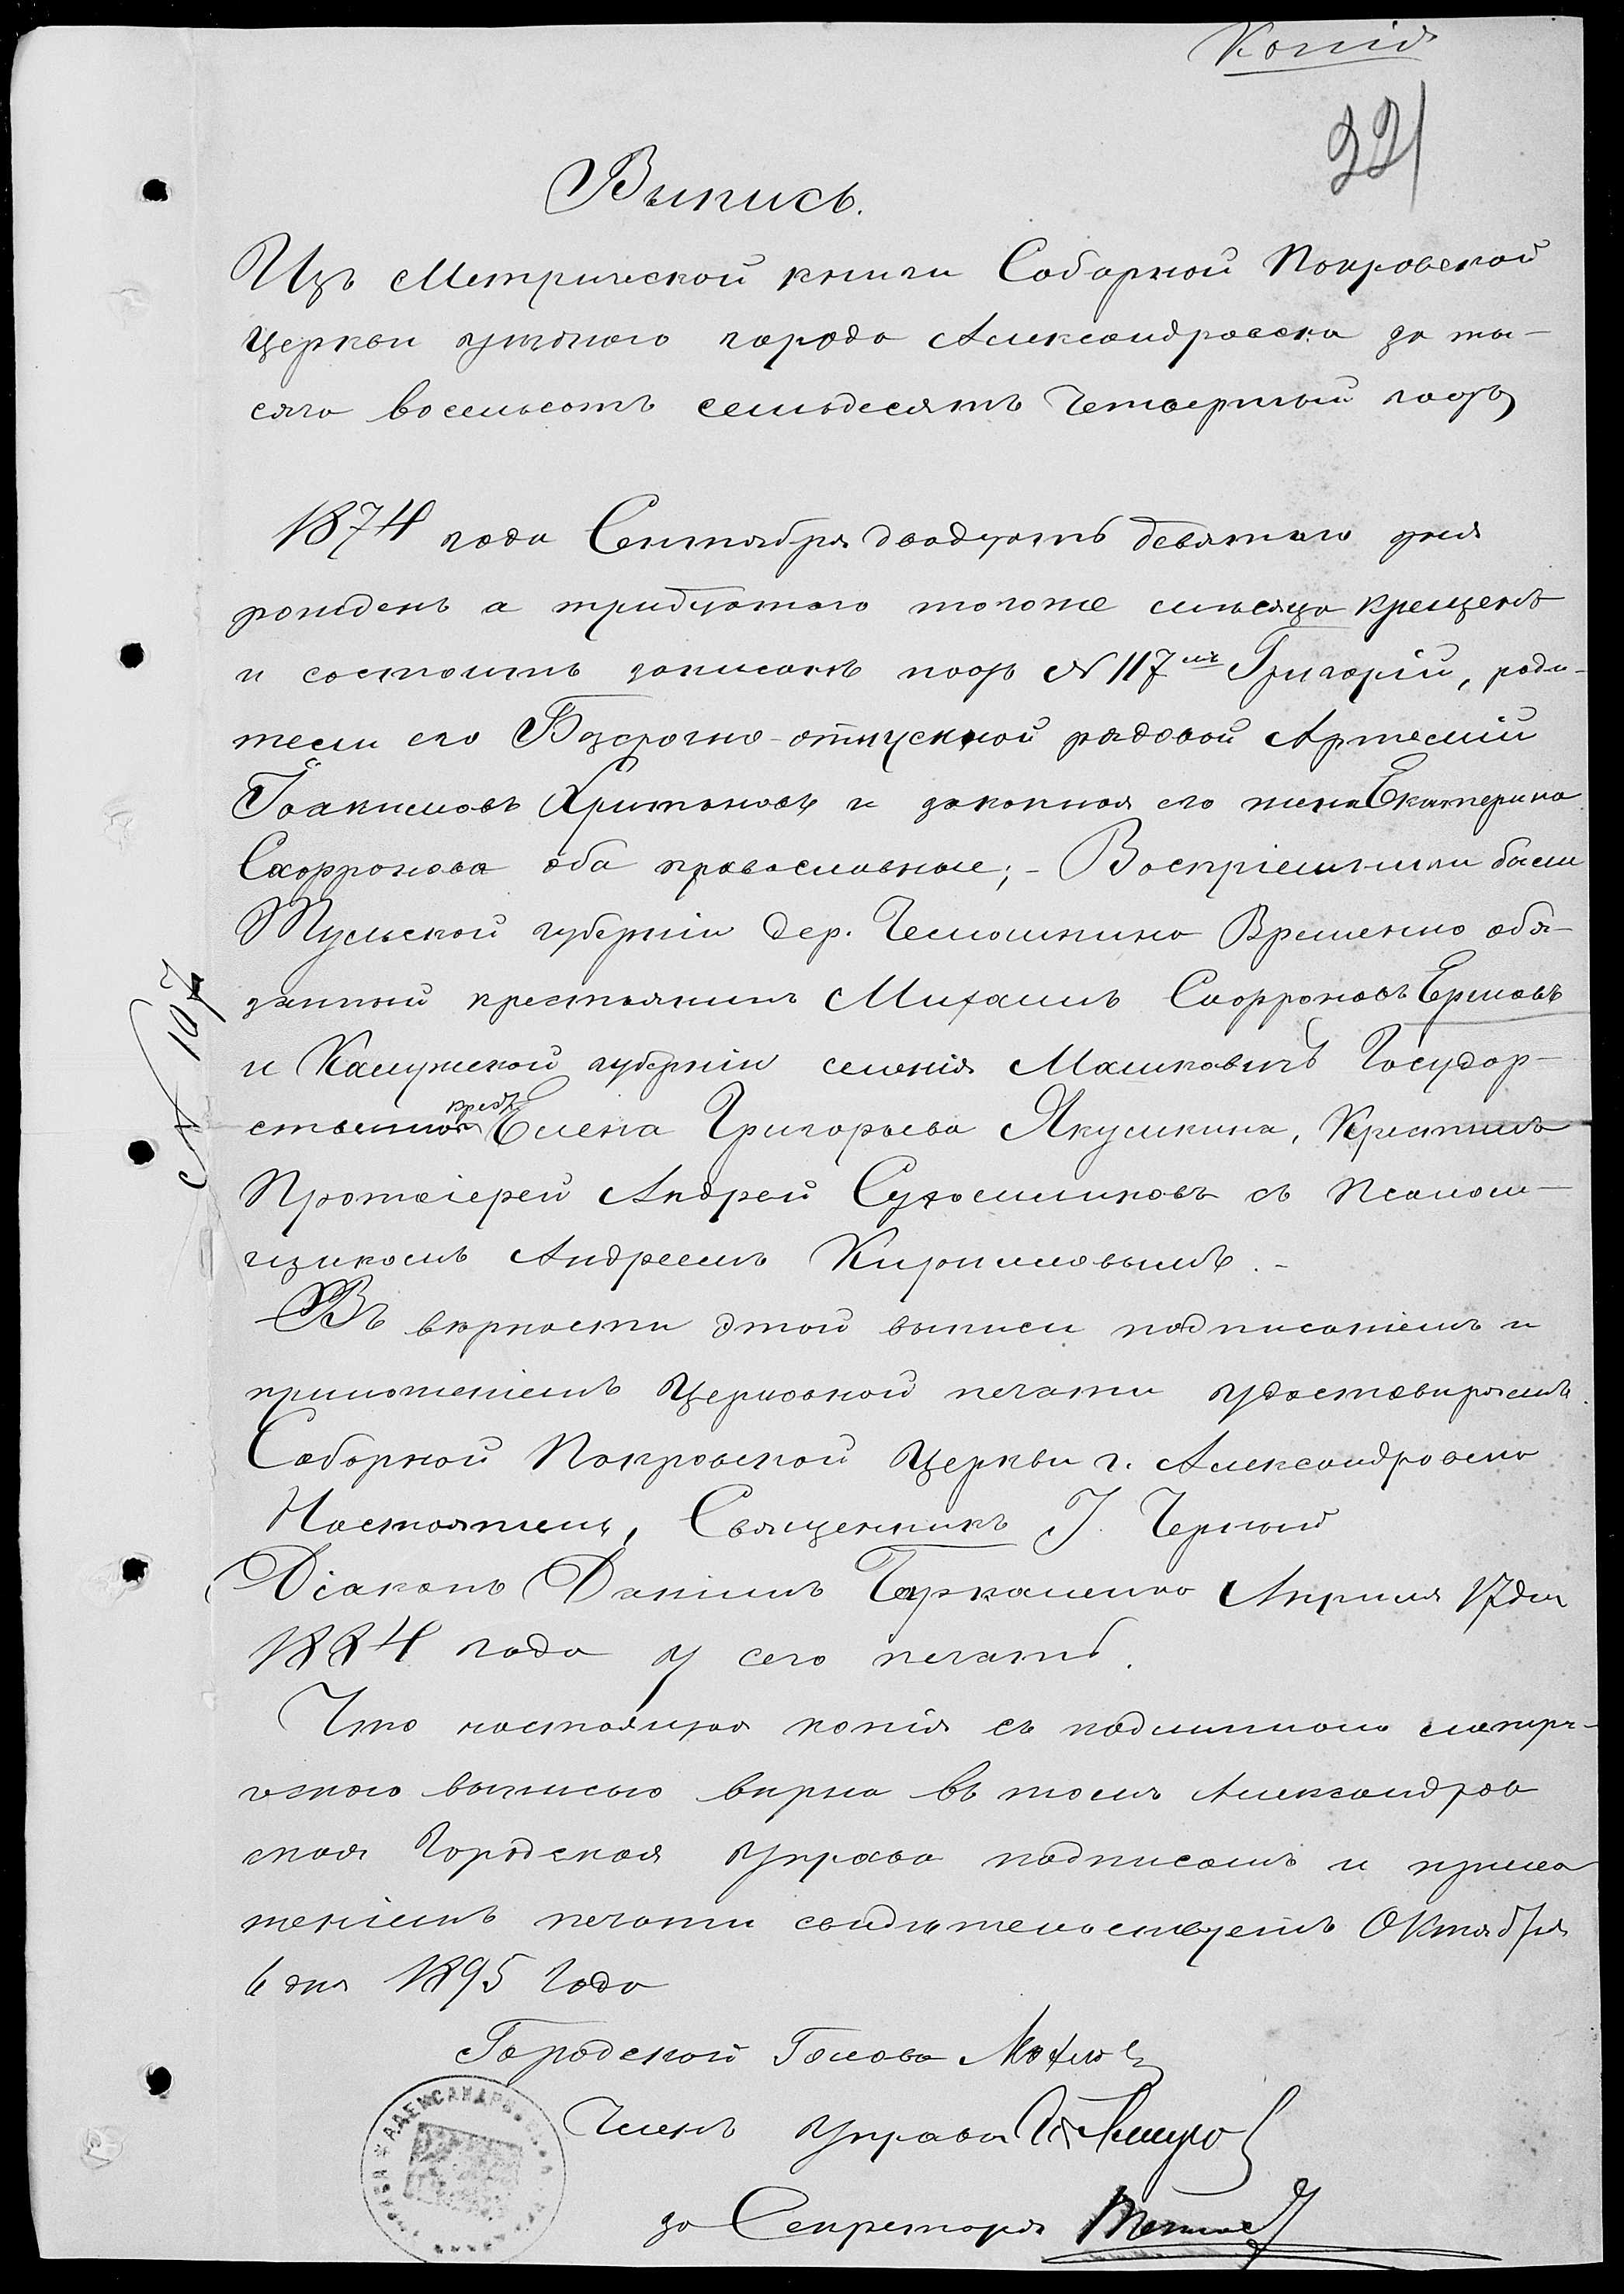 Копія
221
Выпись.
Изъ Метрической книги Соборной Покровской
Церкви уѣзднаго города Александровска за ты-
сяча восемьсотъ семьдесятъ Четвертый годъ
1874 года Сентября двадцать девятаго дня
рожденъ а тридцатаго тогоже мѣсяца крещенъ
и состоитъ записанъ подъ № 117мъ Григорій, роди-
тели его Безсрочно-отпускной рядовой Артемій
Іоакимовъ Харитоновъ и законная его жена Екатерина
Сафронова оба православные; - Воспріемники были
Тульской губерніи дер. Временно обя-
занный крестьянинъ Михаилъ Сафроновъ Ермовъ
и Калужской губерніи селенія Машковичъ Государ-
ственная крест. Елена Григорьева Якушкина, Крестилъ
Протоіерей Андрей Сухомлиновъ съ Псалом-
щикомъ Андреемъ Кирилловымъ. -
Въ вѣрности этой выписи подписаніемъ и
приложеніемъ Церковной печати удостовѣряемъ.
Соборной Покровской Церкви г. Александровска
Настоятель, Священникъ І. Черный
Діаконъ Даніилъ Апрѣля 17 дня
1884 года у сего печать.
Что настоящая копія съ подлинною метри-
ческою выписью вѣрна въ томъ Александров
ская Городская Управа подписомъ и прило
женіемъ печати свидѣтельствуетъ Октября
6 дня 1895 года
Городской Голова
Членъ Управы
за Секретаря
№ 107